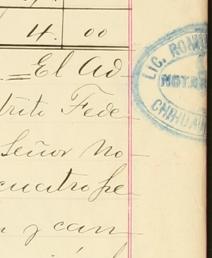 4. 00
= El Ad-
trito Fede-
Señor No-
cuatro pe-
n y can-
LIC. ROM
NOTAR
CHIHUAH